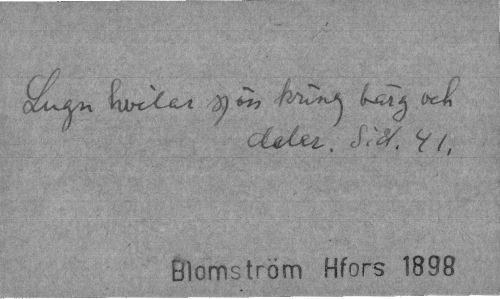 Lugn hvilar sjön kring bärg och
daler. Sid. 41.
Blomström Hfors 1898